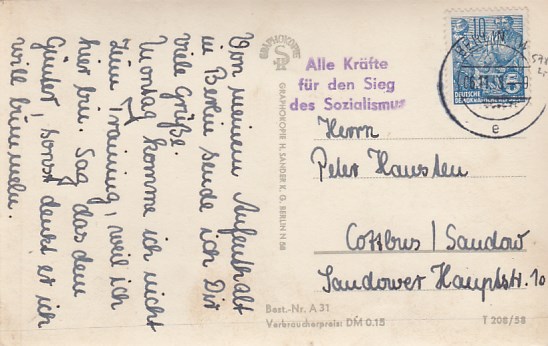 Von meinem Aufenthalt
in Berlin sende ich Dir
viele Grüße.
Montag komme ich nicht
zum Training, weil ich
hier bin. Sag das dem
Günter, sonst denkt er ich
will bummeln.
GRAPHOKOPIE
GRAPHOKOPIE H. SANDER K. G. BERLIN N 58
Alle Kräfte
für den Sieg
des Sozialismus
10
5
DEUTSCHE
BERLIN
e
Herrn
Peter Hausten
Cottbus / Sandow
Sandower Hauptstr. 10
Best.-Nr. A 31
Verbraucherpreis: DM 0.15
T 208/58